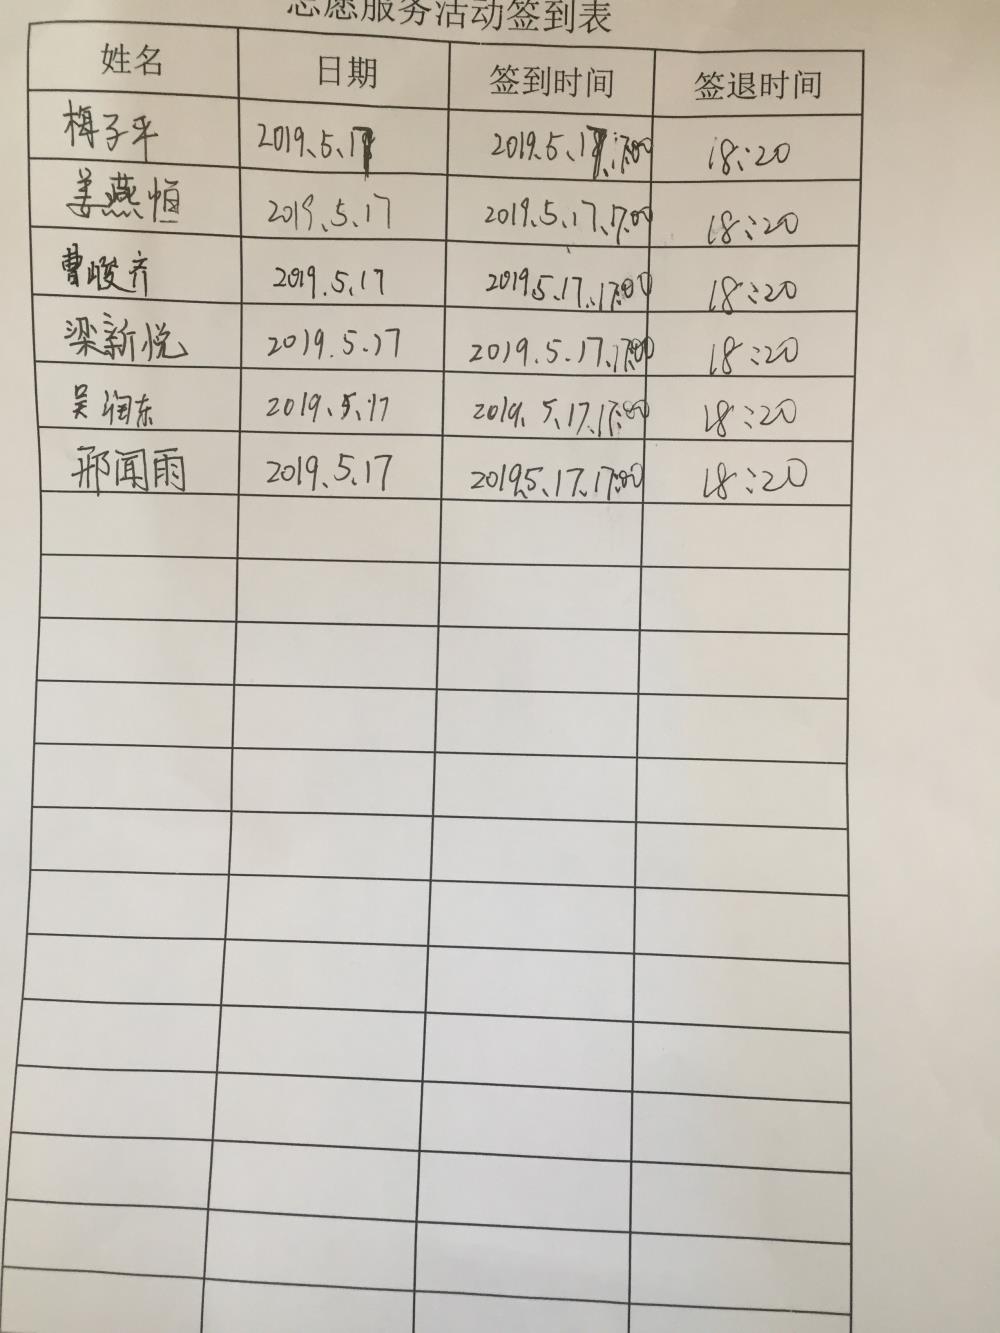 志愿服务活动签到表
姓名 日期 签到时间 签退时间
梅子平 2019.5.17 2019.5.17.17:00 18:20
姜燕恒 2019.5.17 2019.5.17.17:00 18:20
曹峻齐 2019.5.17 2019.5.17.17:00 18:20
梁新悦 2019.5.17 2019.5.17.17:00 18:20
吴润东 2019.5.17 2019.5.17.17:00 18:20
邢闻雨 2019.5.17 2019.5.17.17:00 18:20